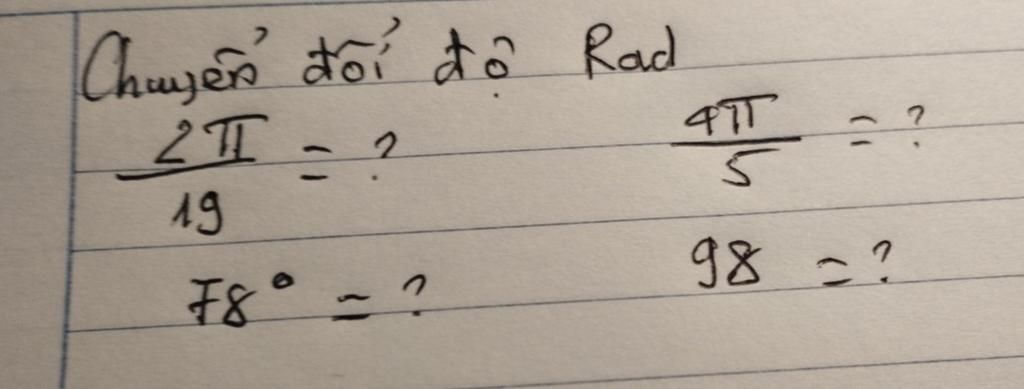 Chuyển đổi độ Rad
2π/19 = ? 4π/5 = ?
78° = ? 98 = ?